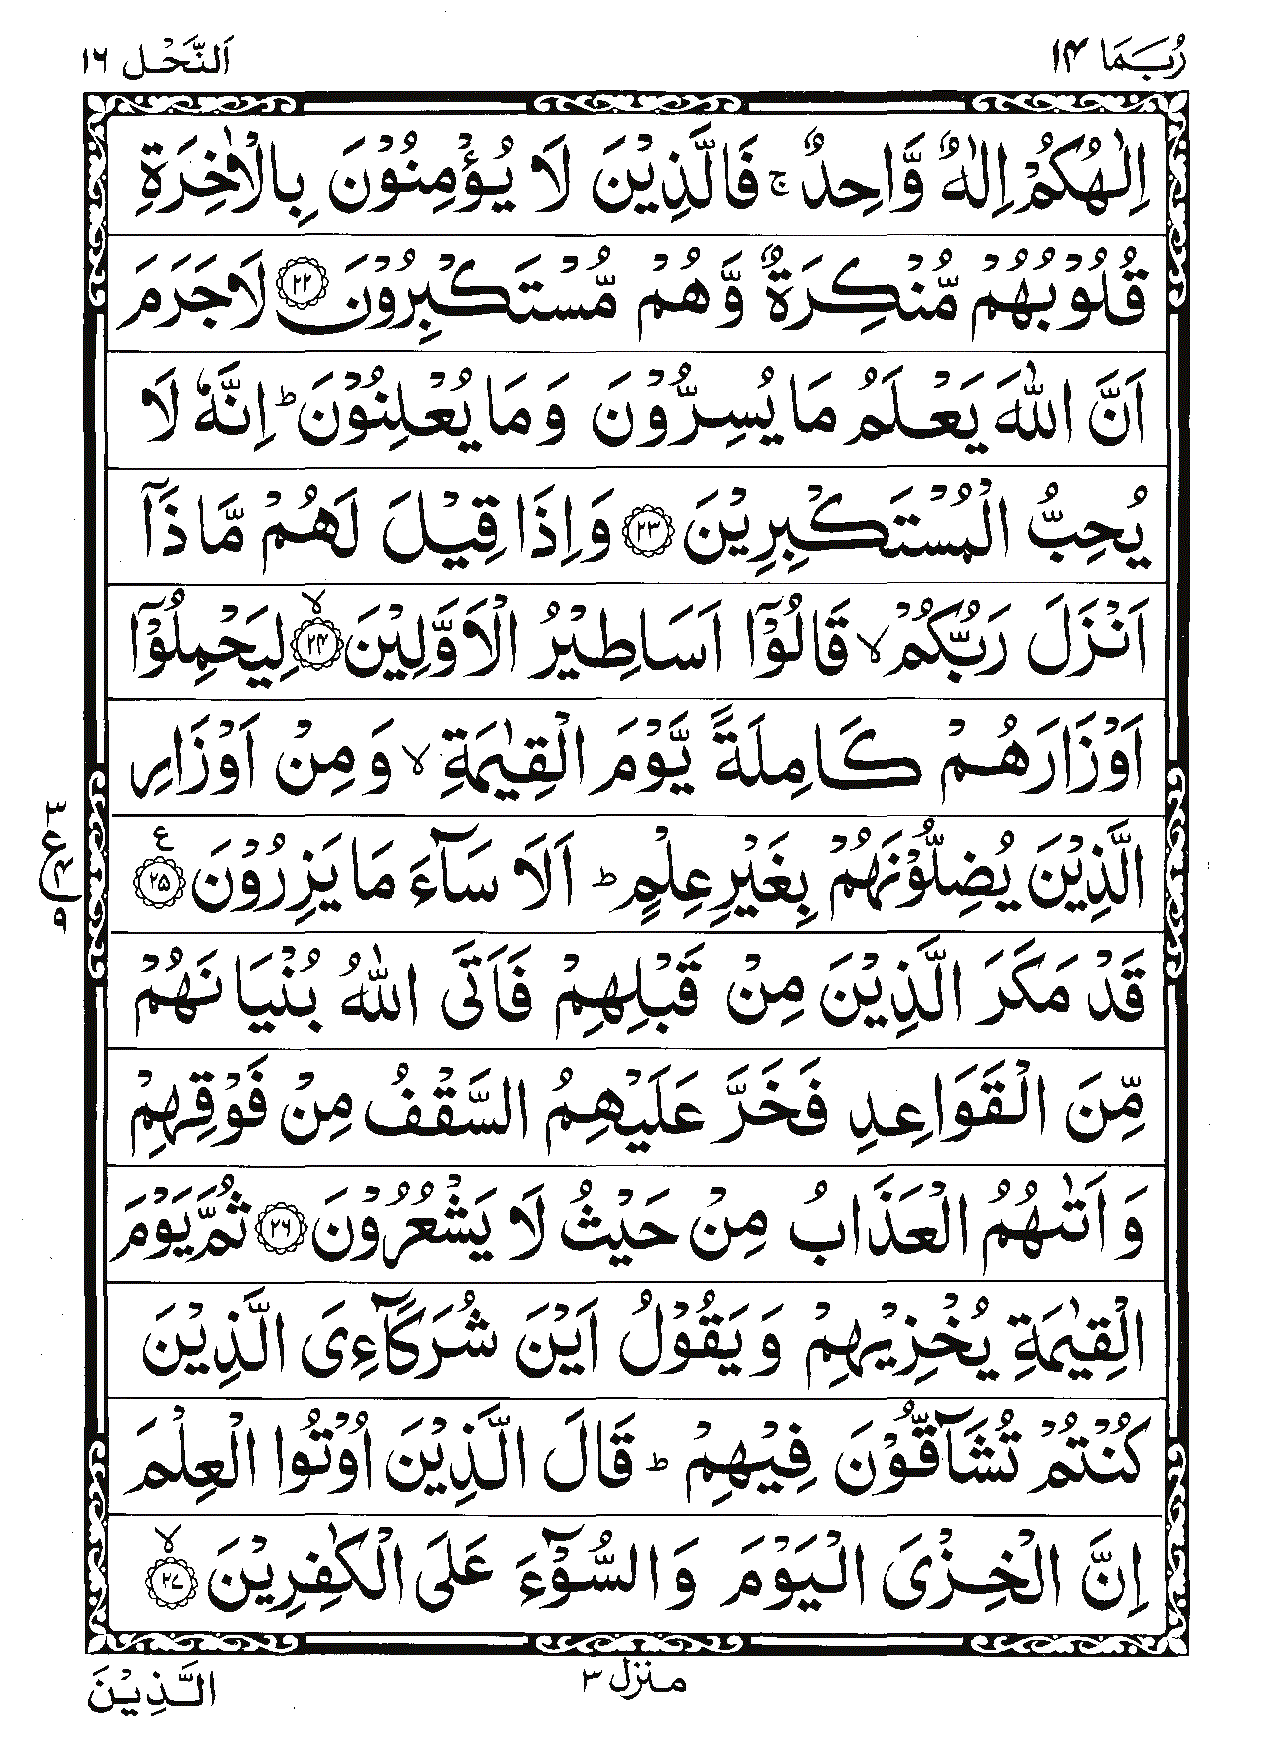 رُبَمَا ١٤
اَلنَّحْل ١٦
اِلٰهُكُمْ اِلٰهٌ وَّاحِدٌ ۚ فَالَّذِيْنَ لَا يُؤْمِنُوْنَ بِالْاٰخِرَةِ
قُلُوْبُهُمْ مُّنْكِرَةٌ وَّهُمْ مُّسْتَكْبِرُوْنَ ﴿٢٢﴾ لَاجَرَمَ
اَنَّ اللّٰهَ يَعْلَمُ مَا يُسِرُّوْنَ وَمَا يُعْلِنُوْنَ ؕ اِنَّهٗ لَا
يُحِبُّ الْمُسْتَكْبِرِيْنَ ﴿٢٣﴾ وَاِذَا قِيْلَ لَهُمْ مَّاذَآ
اَنْزَلَ رَبُّكُمْ ۙ قَالُوْٓا اَسَاطِيْرُ الْاَوَّلِيْنَ ﴿٢٤﴾ ۙ لِيَحْمِلُوْٓا
اَوْزَارَهُمْ كَامِلَةً يَّوْمَ الْقِيٰمَةِ ۙ وَمِنْ اَوْزَارِ
الَّذِيْنَ يُضِلُّوْنَهُمْ بِغَيْرِ عِلْمٍ ؕ اَلَا سَآءَ مَا يَزِرُوْنَ ﴿٢٥﴾ ع
٣ ع ٤ ٩
قَدْ مَكَرَ الَّذِيْنَ مِنْ قَبْلِهِمْ فَاَتَى اللّٰهُ بُنْيَانَهُمْ
مِّنَ الْقَوَاعِدِ فَخَرَّ عَلَيْهِمُ السَّقْفُ مِنْ فَوْقِهِمْ
وَاَتٰىهُمُ الْعَذَابُ مِنْ حَيْثُ لَا يَشْعُرُوْنَ ﴿٢٦﴾ ثُمَّ يَوْمَ
الْقِيٰمَةِ يُخْزِيْهِمْ وَيَقُوْلُ اَيْنَ شُرَكَآءِىَ الَّذِيْنَ
كُنْتُمْ تُشَآقُّوْنَ فِيْهِمْ ؕ قَالَ الَّذِيْنَ اُوْتُوا الْعِلْمَ
اِنَّ الْخِزْىَ الْيَوْمَ وَالسُّوْٓءَ عَلَى الْكٰفِرِيْنَ ﴿٢٧﴾ ۙ
منزل ٣
الَّذِيْنَ